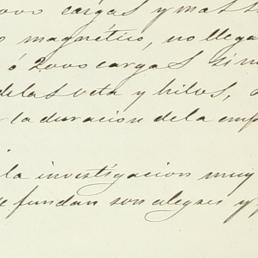 000 cargas y mas t
magnético, no llega
ó 2000 cargas sin
de las veta y hilos,
la duracion de la emp
la investigacion muy
se fundan son alegres y